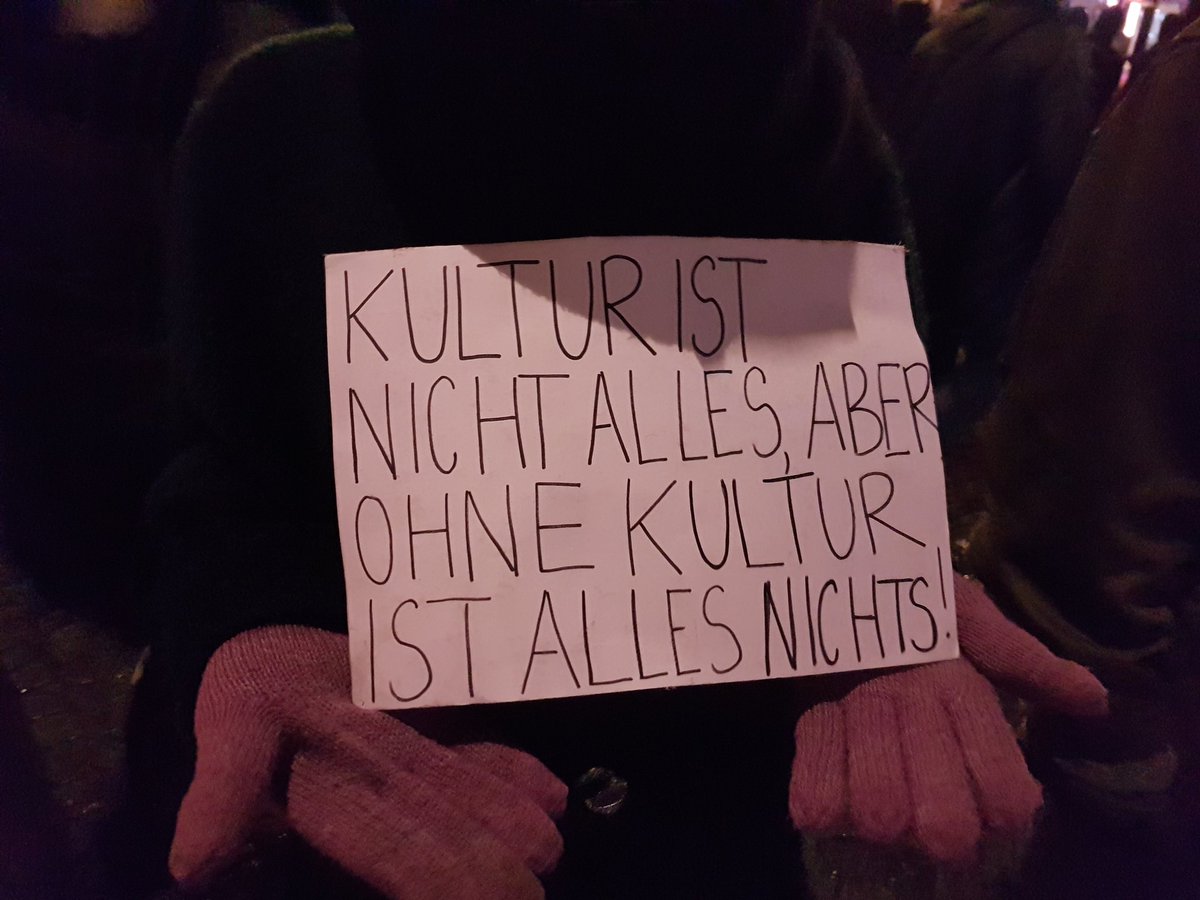 KULTUR IST
NICHT ALLES, ABER
OHNE KULTUR,
IST ALLES NICHTS!